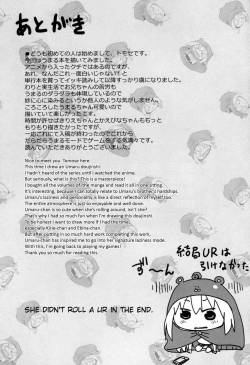 あとがき
どうも初めての人は始めまして、トモセです。
今回はうまる本を描いてみました。
アニメから入ったクチではあるのですが、
あれ、なんだこれ…面白いじゃない!! と
単行本を買ってイッキ読みして以降すっかり虜になりました。
わりと実生活でお兄ちゃんの苦労も
うまるのダラダラも体現しているので
妙に心に染みるというか他人のような気がしません。
ころころしたうまるちゃん可愛いので
描いていて楽しかったです。
時間が許せばきりえちゃんとかえびなちゃんとかももっと
もりもり描きたかったですが、
一応これにて入稿が終わったのでこれから
だらだらうまるモードでゲームをする気満々です。
読んでいただきありがとうございました。
Nice to meet you. Tomose here.
This time I drew an Umaru doujinshi.
I hadn't heard of the series until I watched the anime.
But seriously, what is this? This is a masterpiece!
I bought all the volumes of the manga and read it all in one sitting.
It's interesting, because I can totally relate to Umaru's brother's hardships.
Umaru's laziness and personality is like a direct reflection of myself too.
The entire atmosphere is set up so enjoyable and well-done.
Umaru-chan is so cute when she's rolling around, isn't she?
That's why I had so much fun when drawing this doujinshi.
I wanted to draw more if I had the time,
especially Kirie-chan and Ebina-chan.
But after putting in so much hard work completing this work,
Umaru-chan has inspired me to go into her signature laziness mode.
With this, I'm going back to playing my games!
Thank you so much for reading this.
結局URは
引けなかった
ず〜ん
SHE DIDN'T ROLL A UR IN THE END.